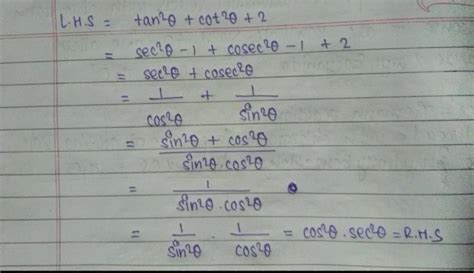 L.H.S = tan²θ + cot²θ + 2
= sec²θ - 1 + cosec²θ - 1 + 2
= sec²θ + cosec²θ
= 1/cos²θ + 1/sin²θ
= (sin²θ + cos²θ)/(sin²θ . cos²θ)
= 1/(sin²θ . cos²θ)
= 1/sin²θ . 1/cos²θ = cos²θ . sec²θ = R.H.S